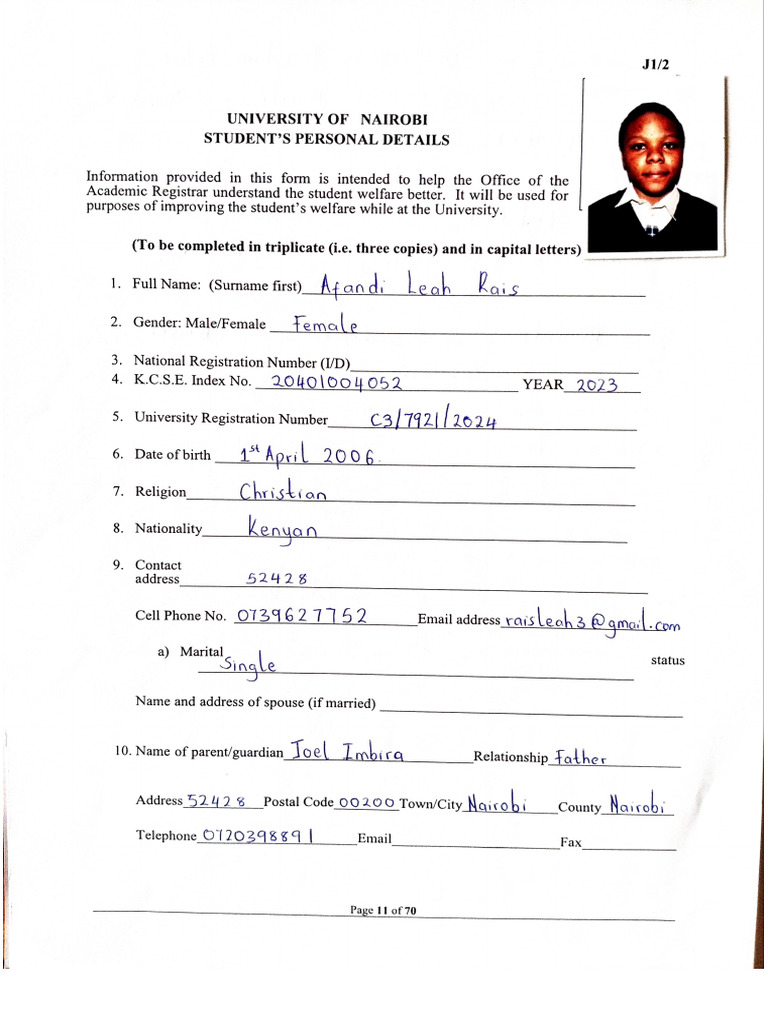 J1/2
UNIVERSITY OF NAIROBI
STUDENT'S PERSONAL DETAILS
Information provided in this form is intended to help the Office of the
Academic Registrar understand the student welfare better. It will be used for
purposes of improving the student's welfare while at the University.
(To be completed in triplicate (i.e. three copies) and in capital letters)
1. Full Name: (Surname first) Afandi Leah Rais
2. Gender: Male/Female Female
3. National Registration Number (I/D)
4. K.C.S.E. Index No. 20401004052 YEAR 2023
5. University Registration Number C3/7921/2024
6. Date of birth 1st April 2006.
7. Religion Christian
8. Nationality Kenyan
9. Contact
address 52428
Cell Phone No. 0739627752 Email address raisleah3@gmail.com
a) Marital Single status
Name and address of spouse (if married)
10. Name of parent/guardian Joel Imbira Relationship Father
Address 52428 Postal Code 00200 Town/City Nairobi County Nairobi
Telephone 0720398891 Email Fax
Page 11 of 70